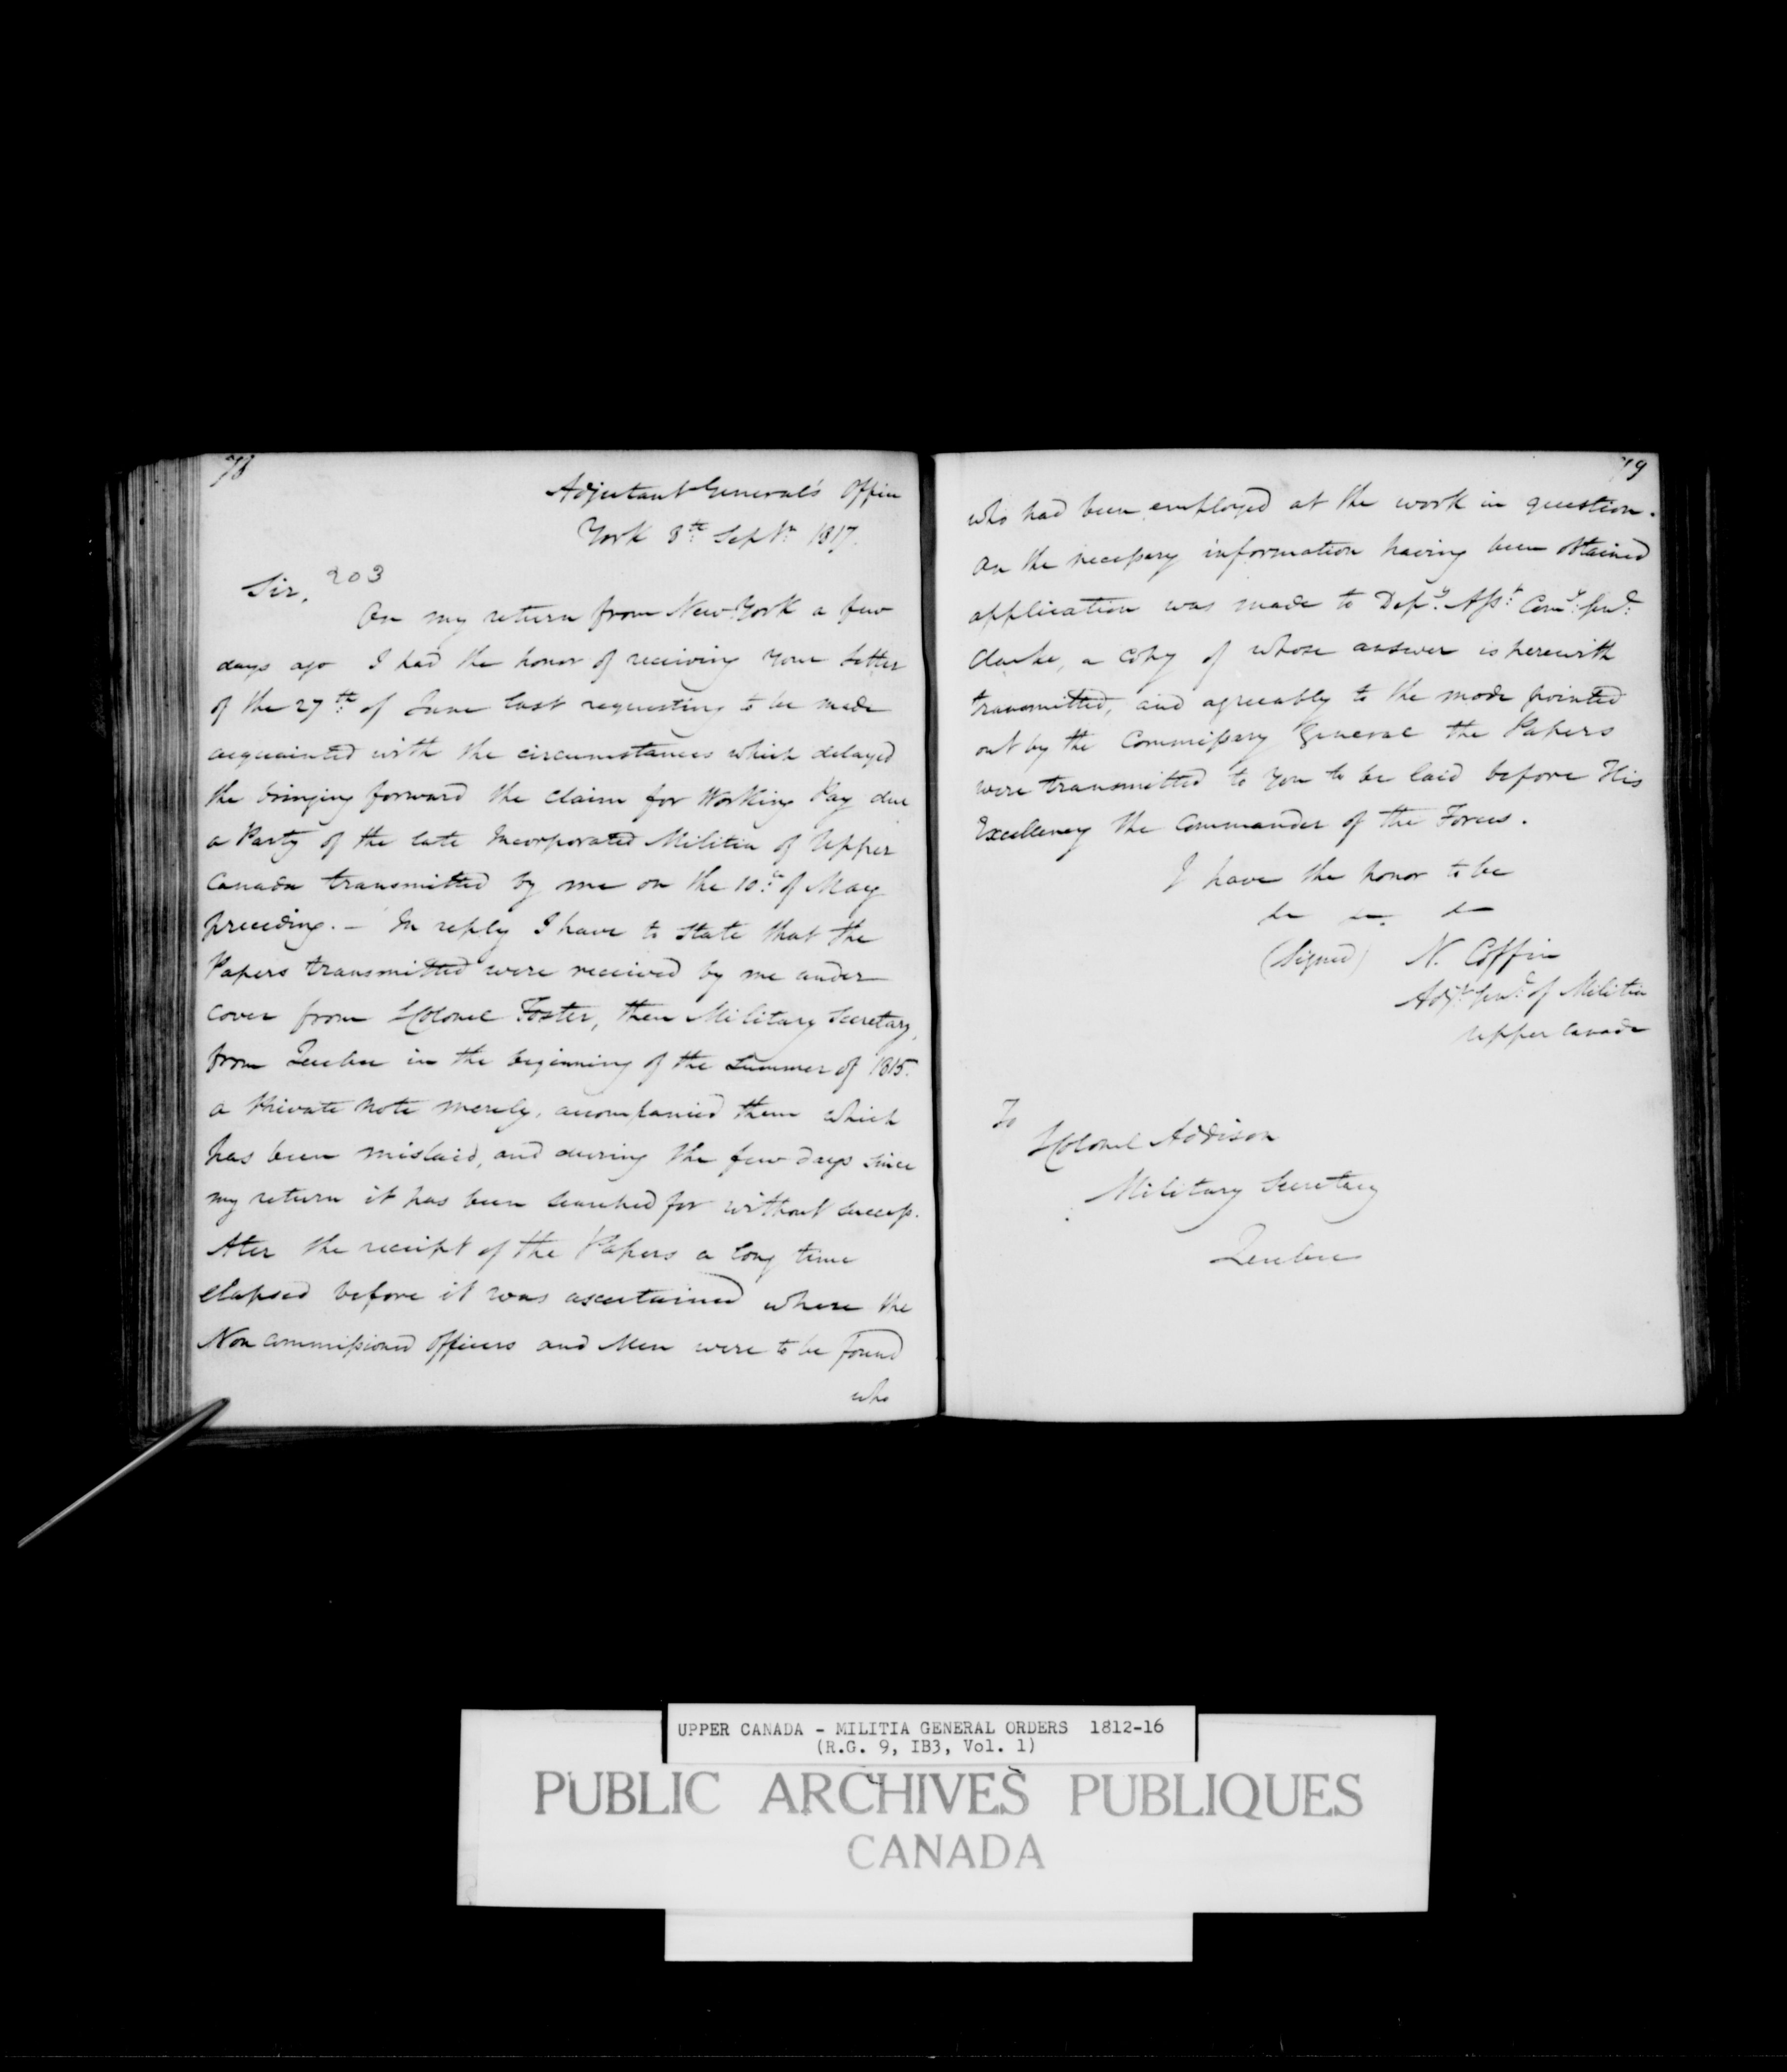 78
Adjutant General's Office
York 8th Septr 1817.
203
Sir,
On my return from New York a few
days ago I had the honor of receiving your letter
of the 27th of June last requesting to be made
acquainted with the circumstances which delayed
the bringing forward the claim for Working Pay due
a Party of the late Incorporated Militia of Upper
Canada transmitted by me on the 10th of May
preceding. – In reply I have to state that the
Papers transmitted were received by me under
cover from LColonel Foster, then Military Secretary,
from Quebec in the beginning of the Summer of 1815.
a Private Note merely, accompanied them which
has been mislaid, and during the few days since
my return it has been searched for without success.
Ater the receipt of the Papers a long time
elapsed before it was ascertained where the
Non commissioned Officers and Men were to be found
who
79
who had been employed at the work in question.
On the necessary information having been obtained
application was made to Depy Asst Comy Genl
Clarke, a copy of whose answer is herewith
transmitted, and agreeably to the mode pointed
out by the Commissary General the Papers
were transmitted to you to be laid before His
Excellency the Commander of the Forces.
I have the honor to be
&c &c &c
(Signed) N. Coffin
Adjt Genl of Militia
Upper Canada
To
LColonel Addison
Military Secretary
Quebec
UPPER CANADA - MILITIA GENERAL ORDERS 1812-16
(R.G. 9, IB3, Vol. 1)
PUBLIC ARCHIVES PUBLIQUES
CANADA